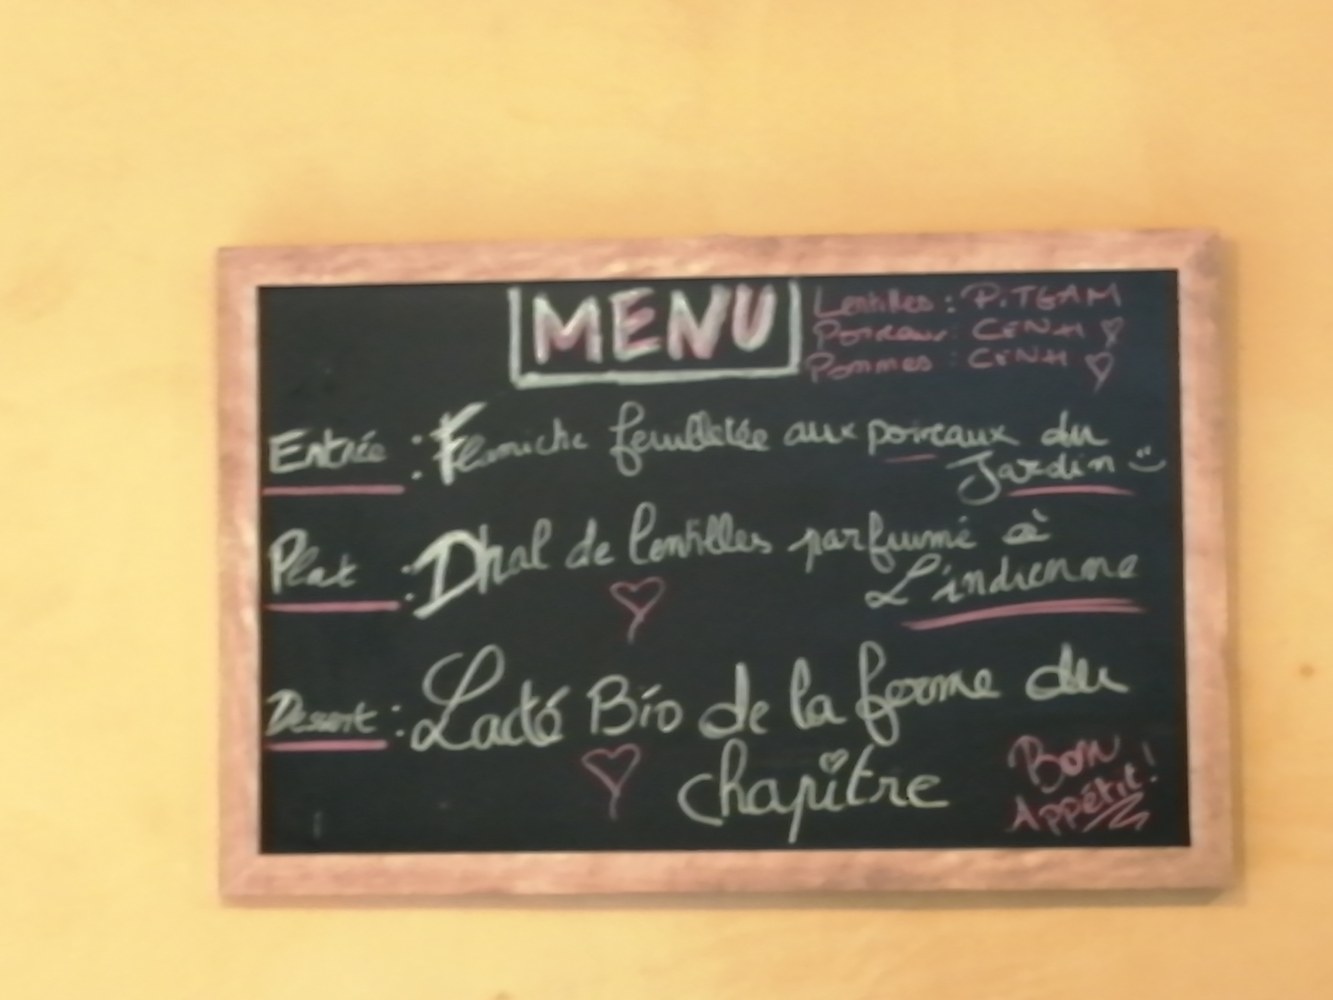 MENU
Lentilles : P.TGAM
Poireaux : CENH
Pommes : CENH
Entrée : Flamiche feuilletée aux poireaux du
Jardin
Plat : Dhal de lentilles parfumé à
L'indienne
Dessert : Lacté Bio de la ferme du
chapitre
Bon
Appétit !